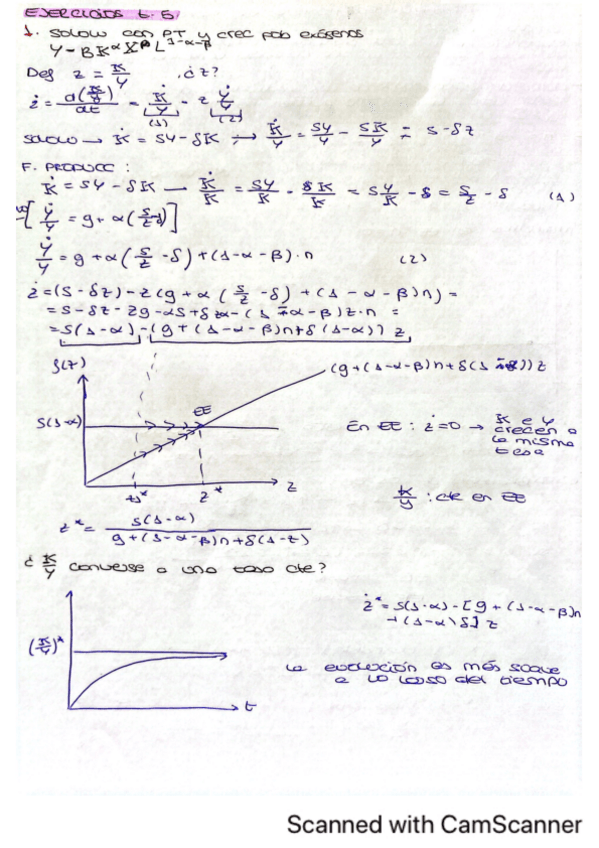 EJERCICIOS t. 5
1. Solow con PT y crec pob exógenos
Y = BK^α X^β L^{1-α-β}
Def z = K/Y ¿z?
ż = d(K/Y)/dt = K̇/Y - z Ẏ/Y
(1) (2)
Solow → K̇ = sY - δK ; → K̇/Y = sY/Y - δK/Y = s - δz
F. PRODUCC :
K̇ = sY - δK → K̇/K = sY/K - δK/K = sY/K - δ = s/z - δ (1)
[Ẏ/Y = g + α(s/z - δ)]
Ẏ/Y = g + α(s/z - δ) + (1-α-β)·n (2)
ż = (s - δz) - z(g + α(s/z - δ) + (1-α-β)n) =
= s - δz - zg - αs + δzα - (1-α-β)z·n =
= s(1-α) - (g + (1-α-β)n + δ(1-α)) z
f(z)
(g + (1-α-β)n + δ(1-α))z
s(1-α)
EE
En EE : ż = 0 → K e Y
crecen a
la misma
tasa
z*
z
K/Y : cte en EE
z* = s(1-α) / g + (1-α-β)n + δ(1-z)
¿ K/Y converge a una tasa cte?
ż* = s(1-α) - [g + (1-α-β)n
+ (1-α)δ] z
(K/Y)*
la evolución es más suave
a lo largo del tiempo
t
Scanned with CamScanner